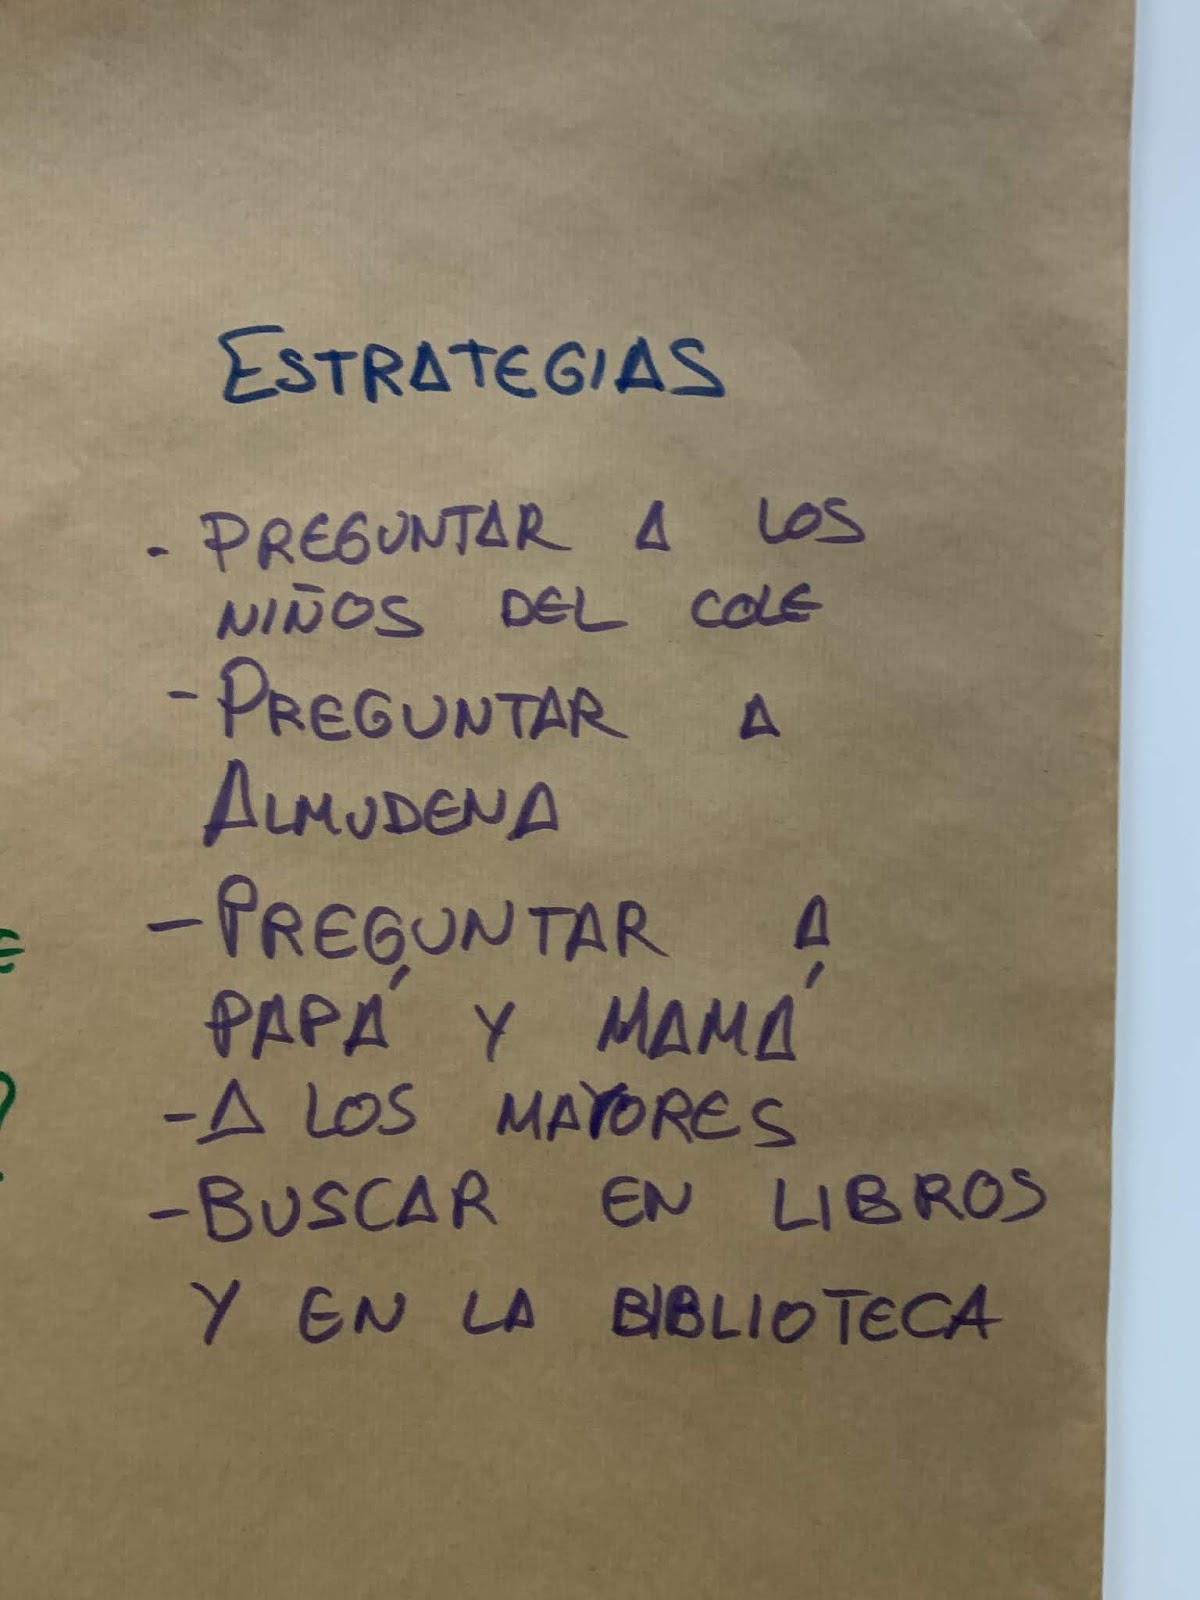 ESTRATEGIAS
- PREGUNTAR A LOS
NIÑOS DEL COLE
- PREGUNTAR A
ALMUDENA
- PREGUNTAR A
PAPÁ Y MAMÁ
- A LOS MAYORES
- BUSCAR EN LIBROS
Y EN LA BIBLIOTECA